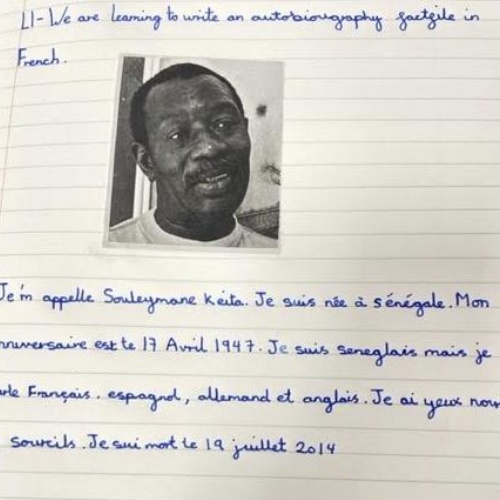 LI - We are learning to write an autobiougraphy factfile in
French.
Je'm appelle Souleymane Keita. Je suis née à sénégale. Mon
nniversaire est le 17 Avril 1947. Je suis seneglais mais je
arle Français. espagnol, allemand et anglais. Je ai yeux noir
sourcils. Je sui mort le 19 juillet 2014